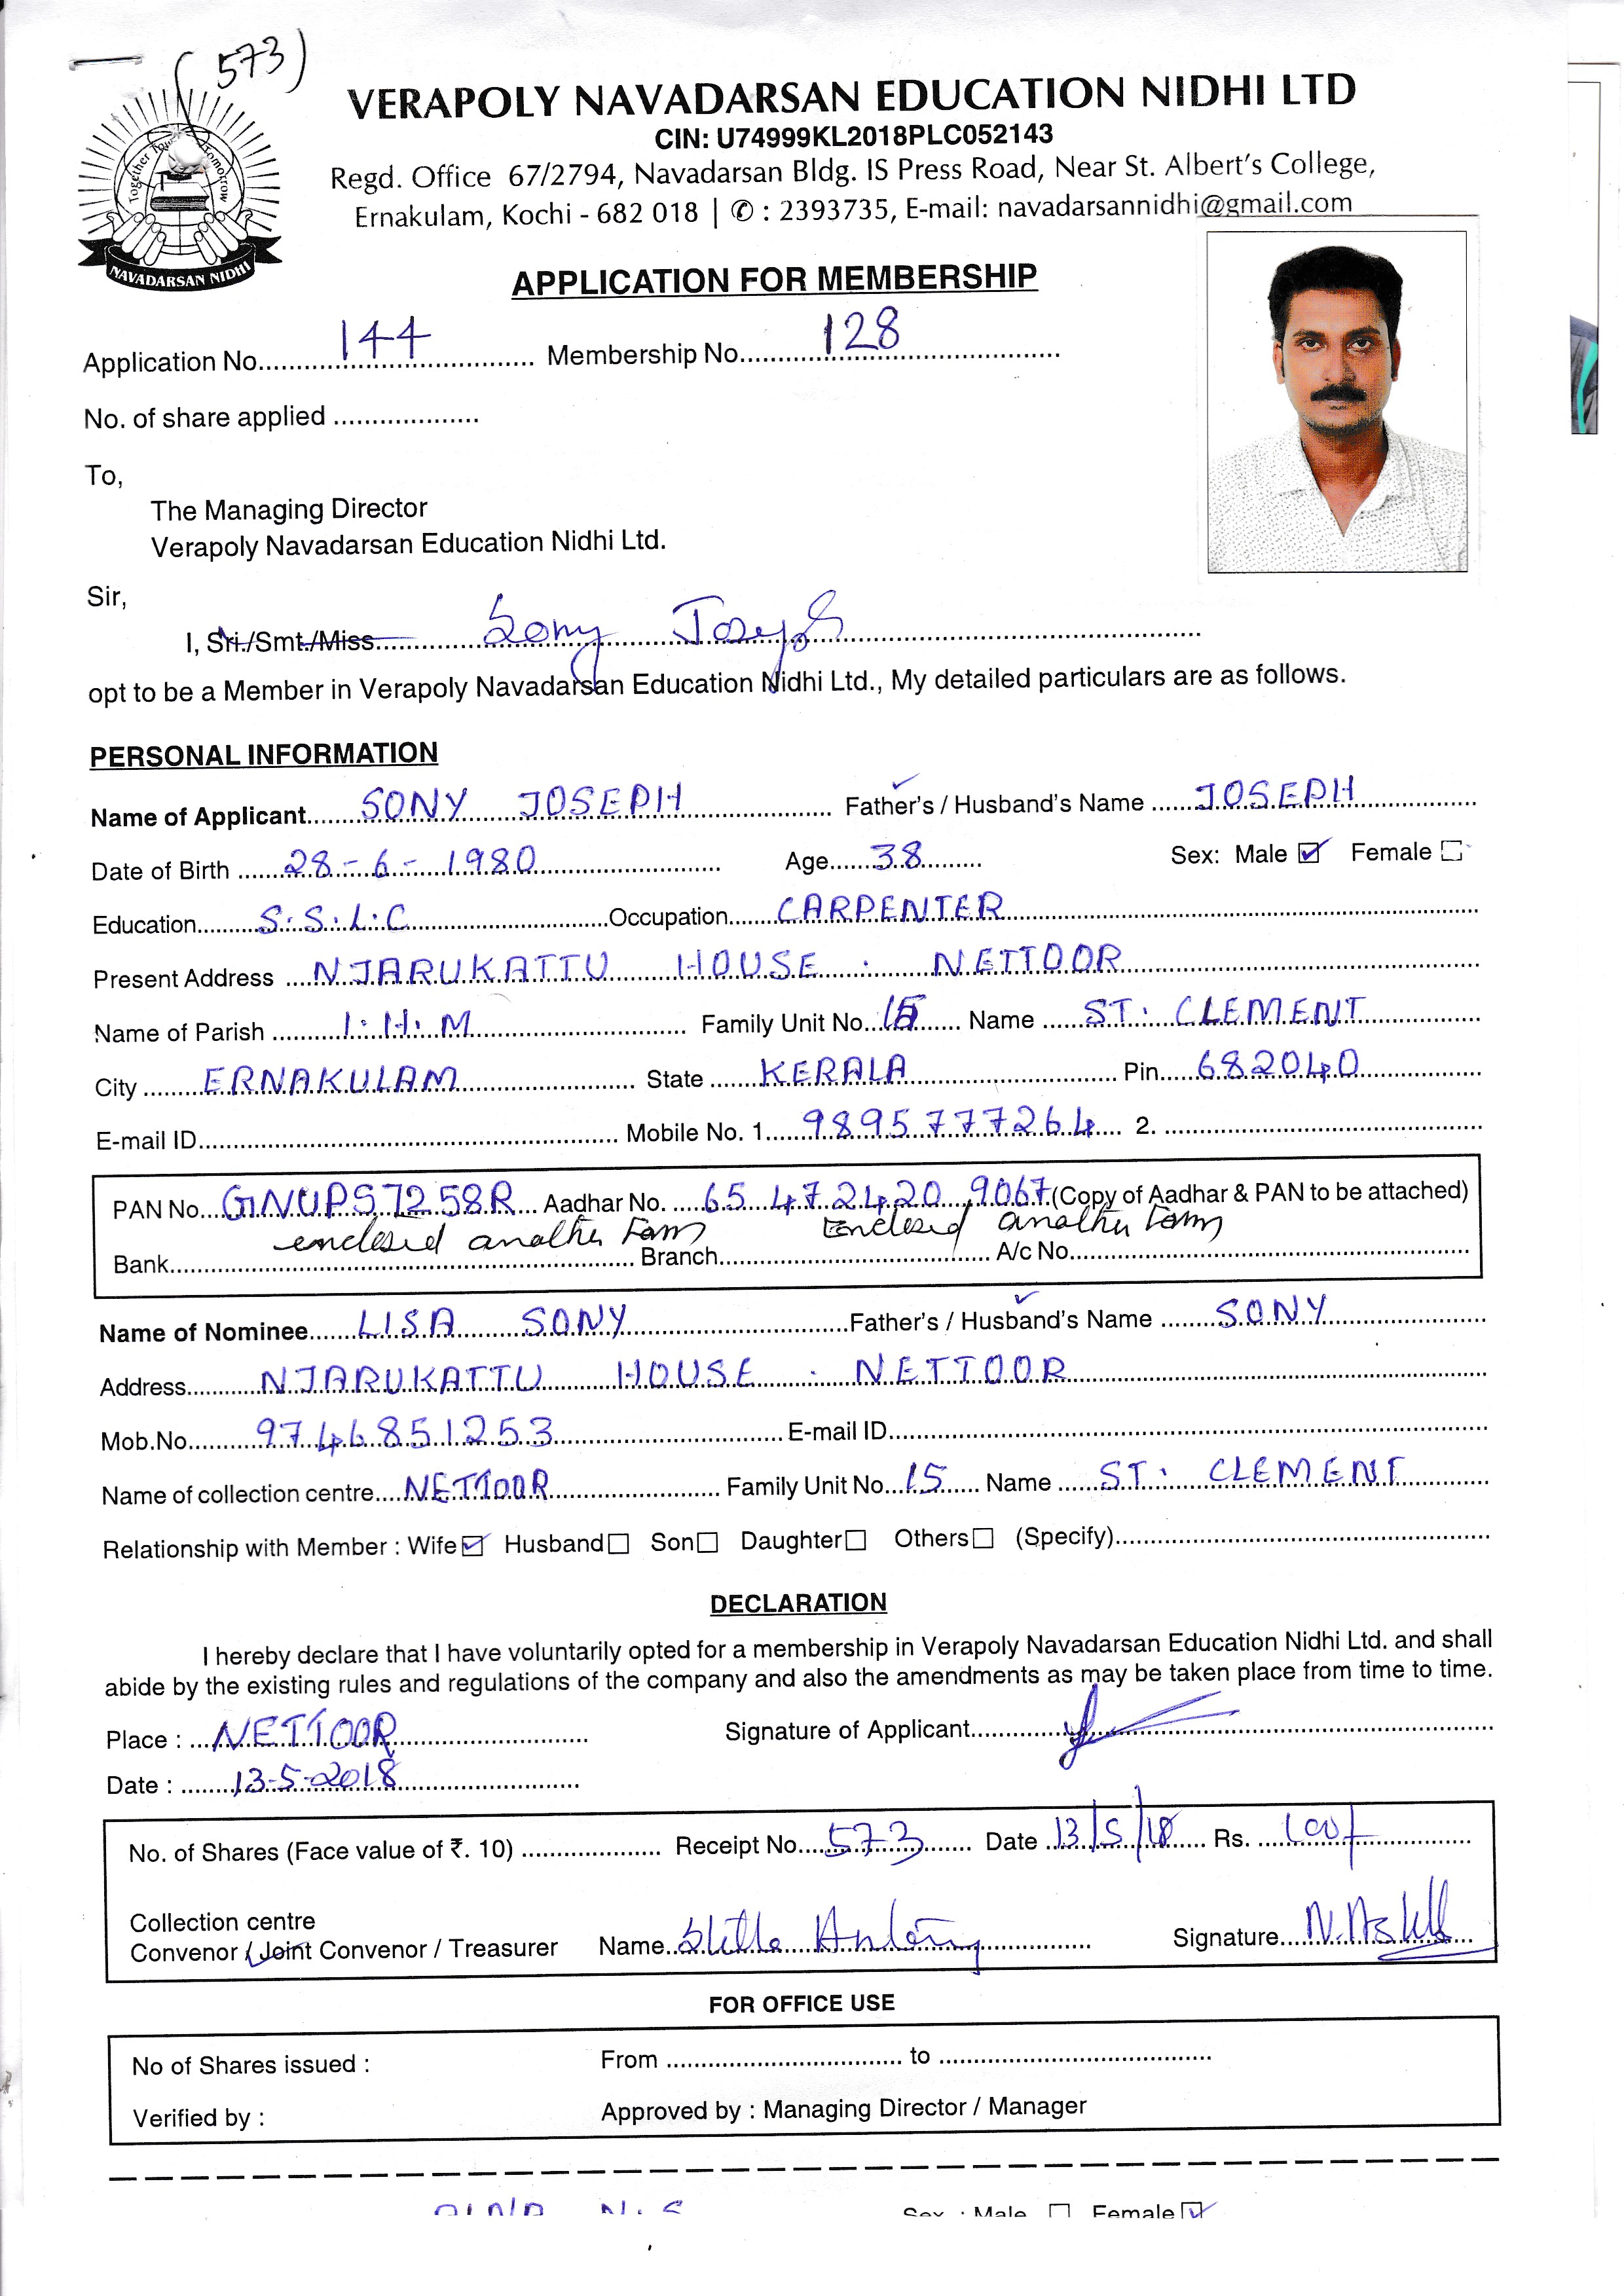 (573)
Together Towards Tomorrow
NAVADARSAN NIDHI
VERAPOLY NAVADARSAN EDUCATION NIDHI LTD
CIN: U74999KL2018PLC052143
Regd. Office 67/2794, Navadarsan Bldg. IS Press Road, Near St. Albert's College,
Ernakulam, Kochi - 682 018 | ✆ : 2393735, E-mail: navadarsannidhi@gmail.com
APPLICATION FOR MEMBERSHIP
Application No. 144 Membership No. 128
No. of share applied ...................
To,
The Managing Director
Verapoly Navadarsan Education Nidhi Ltd.
Sir,
I, Sri./Smt./Miss Sony Joseph
opt to be a Member in Verapoly Navadarsan Education Nidhi Ltd., My detailed particulars are as follows.
PERSONAL INFORMATION
Name of Applicant SONY JOSEPH Father's / Husband's Name JOSEPH
Date of Birth 28-6-1980 Age 38 Sex: Male ☑ Female ☐
Education S.S.L.C Occupation CARPENTER
Present Address NJARUKATTU HOUSE . NETTOOR
Name of Parish I.H.M Family Unit No. 15 Name ST. CLEMENT
City ERNAKULAM State KERALA Pin 682040
E-mail ID Mobile No. 1 9895777264 2.
PAN No. GNUPS7258R Aadhar No. 65 472420 9067 (Copy of Aadhar & PAN to be attached)
enclosed another Form Enclosed another Form
Bank Branch A/c No.
Name of Nominee LISA SONY Father's / Husband's Name SONY
Address NJARUKATTU HOUSE . NETTOOR
Mob.No. 9746851253 E-mail ID
Name of collection centre NETTOOR Family Unit No. 15 Name ST. CLEMENT
Relationship with Member : Wife ☑ Husband ☐ Son ☐ Daughter ☐ Others ☐ (Specify)
DECLARATION
I hereby declare that I have voluntarily opted for a membership in Verapoly Navadarsan Education Nidhi Ltd. and shall
abide by the existing rules and regulations of the company and also the amendments as may be taken place from time to time.
Place : NETTOOR Signature of Applicant
Date : 13-5-2018
No. of Shares (Face value of ₹. 10) Receipt No. 573 Date 13/5/18 Rs. 100/-
Collection centre
Convenor / Joint Convenor / Treasurer Name Stella Antony Signature
FOR OFFICE USE
No of Shares issued : From to
Verified by : Approved by : Managing Director / Manager
Sex : Male ☐ Female ☑